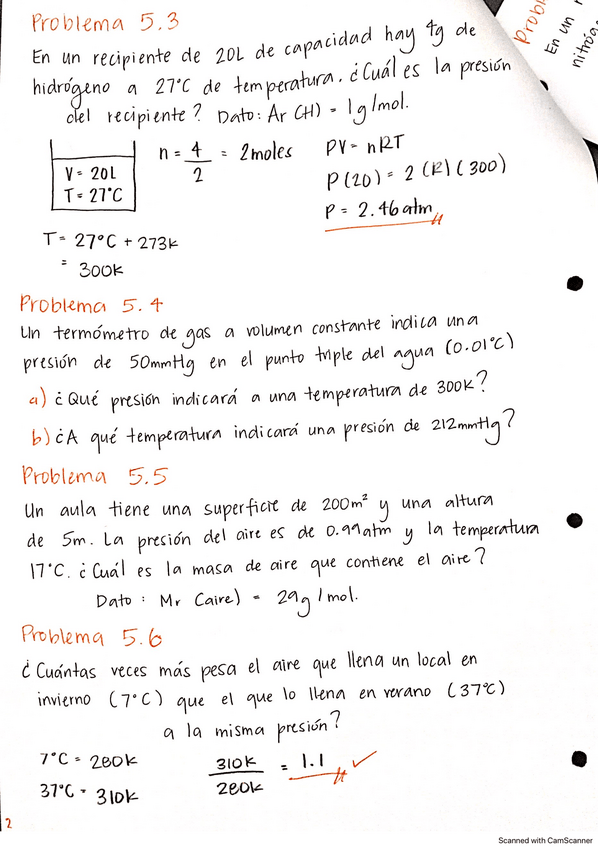 Problema 5.3
En un recipiente de 20L de capacidad hay 4g de
hidrógeno a 27°C de temperatura. ¿Cuál es la presión
del recipiente? Dato: Ar (H) = 1g/mol.
V = 20L
T = 27°C
n = 4/2 = 2moles
PV = nRT
P(20) = 2 (R)(300)
P = 2.46 atm
T = 27°C + 273k
= 300k
Problema 5.4
Un termómetro de gas a volumen constante indica una
presión de 50mmHg en el punto triple del agua (0.01°C)
a) ¿Qué presión indicará a una temperatura de 300k?
b) ¿A qué temperatura indicará una presión de 212mmHg?
Problema 5.5
Un aula tiene una superficie de 200m² y una altura
de 5m. La presión del aire es de 0.99atm y la temperatura
17°C. ¿Cuál es la masa de aire que contiene el aire?
Dato: Mr (aire) = 29g/mol.
Problema 5.6
¿Cuántas veces más pesa el aire que llena un local en
invierno (7°C) que el que lo llena en verano (37°C)
a la misma presión?
7°C = 280k
37°C = 310k
310k/280k = 1.1 ✓
2
Probl
En un r
nitróg
Scanned with CamScanner